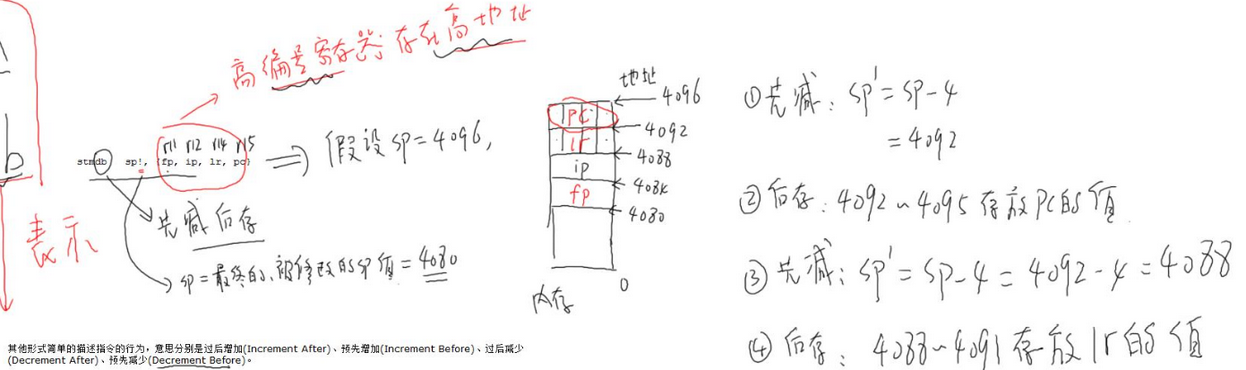 高编号寄存器:存在高地址
r11 r12 r14 r15
stmdb sp!, {fp, ip, lr, pc}
⇒ 假设sp=4096,
先减后存
sp=最终的、被修改的sp值=4080
表示
b
地址
4096
pc
4092
lr
4088
ip
4084
fp
4080
0
内存
①先减: sp'=sp-4
=4092
②后存: 4092~4095 存放PC的值
③先减: sp'=sp-4=4092-4=4088
④后存: 4088~4091 存放lr的值
其他形式简单的描述指令的行为，意思分别是过后增加(Increment After)、预先增加(Increment Before)、过后减少
(Decrement After)、预先减少(Decrement Before)。